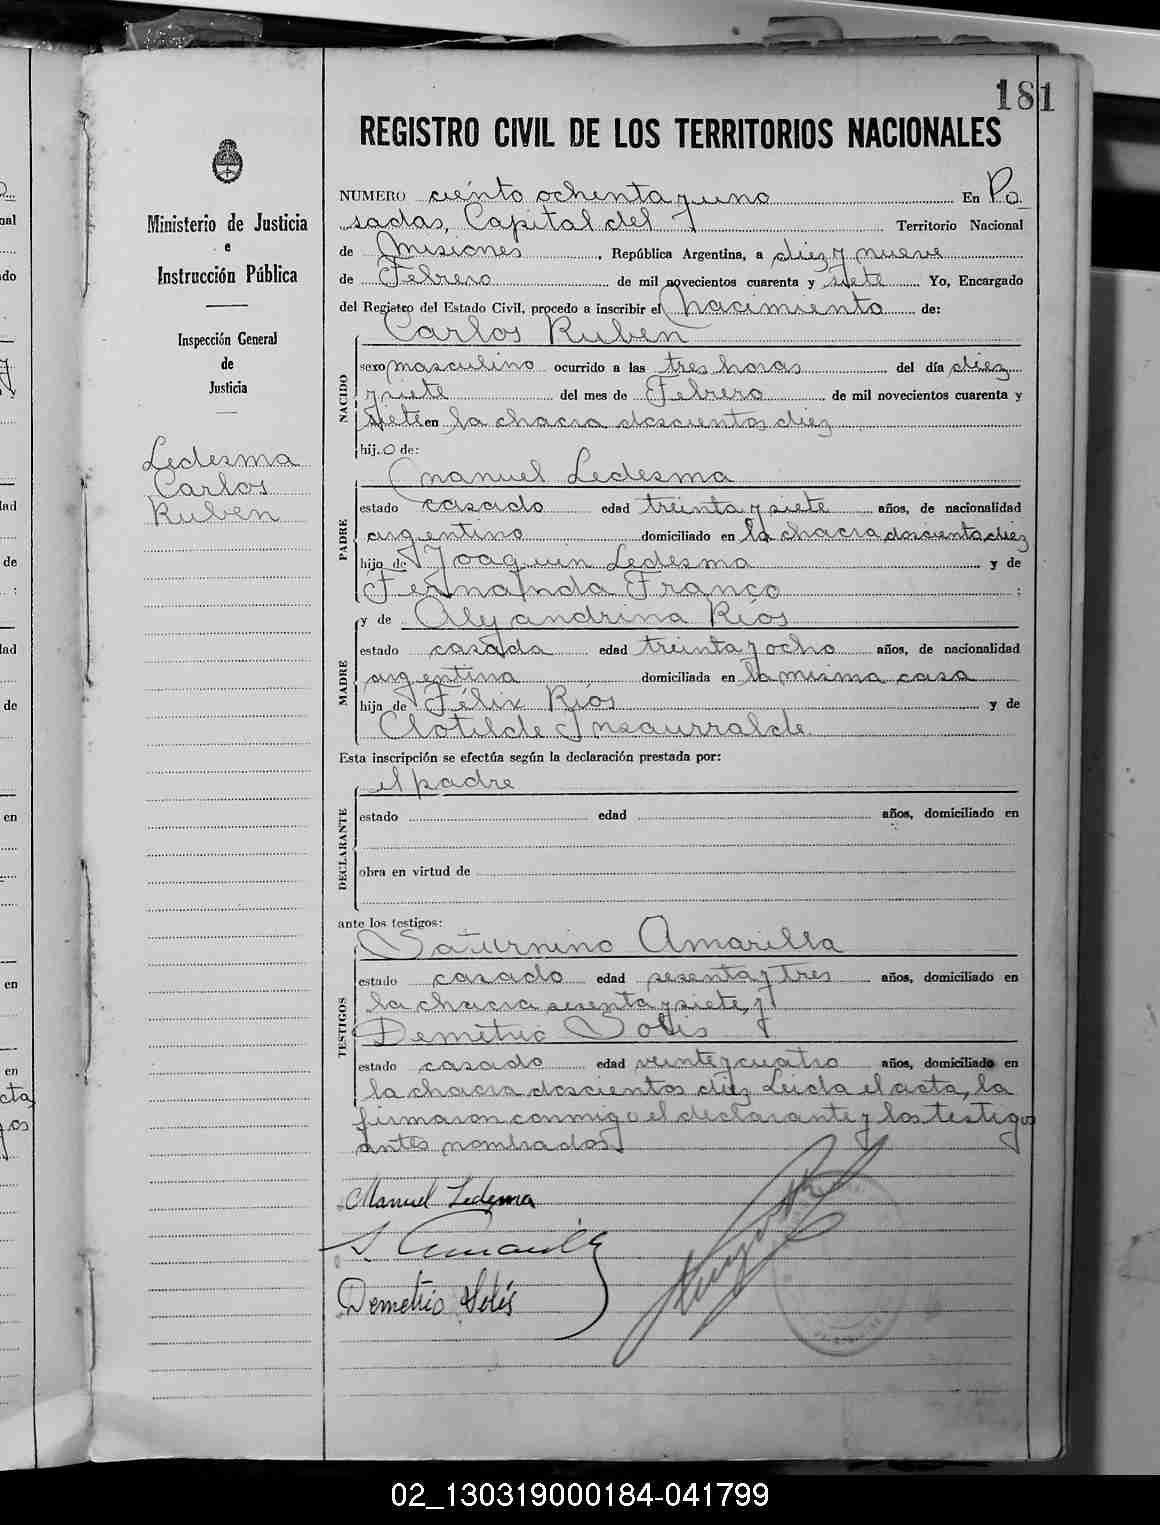 181
REGISTRO CIVIL DE LOS TERRITORIOS NACIONALES
Ministerio de Justicia
e
Instrucción Pública
Inspección General
de
Justicia
Ledesma
Carlos
Ruben
NUMERO ciento ochenta y uno En Po
sadas, Capital del Territorio Nacional
de Misiones, República Argentina, a diez y nueve
de Febrero de mil novecientos cuarenta y siete Yo, Encargado
del Registro del Estado Civil, procedo a inscribir el nacimiento de:
Carlos Ruben
NACIDO
sexo masculino ocurrido a las tres horas del día diez
y siete del mes de Febrero de mil novecientos cuarenta y
siete en la chacra doscientos diez
hij.o de:
Manuel Ledesma
PADRE
estado casado edad treinta y siete años, de nacionalidad
argentino domiciliado en la chacra doscientos diez
hijo de Joaquin Ledesma y de
Fernanda Franco ;
y de Alejandrina Ríos
MADRE
estado casada edad treinta y ocho años, de nacionalidad
argentina domiciliada en la misma casa
hija de Félix Ríos y de
Clotilde Insaurralde.
Esta inscripción se efectúa según la declaración prestada por:
el padre
DECLARANTE
estado edad años, domiciliado en
obra en virtud de
ante los testigos:
Saturnino Amarilla
TESTIGOS
estado casado edad sesenta y tres años, domiciliado en
la chacra sesenta y siete, y
Demetrio Solis
estado casado edad veinte y cuatro años, domiciliado en
la chacra doscientos diez Leida el acta, la
firmaron conmigo el declarante y los testigos
antes nombrados
Manuel Ledesma
S Amarilla
Demetrio Solís
02_130319000184-041799